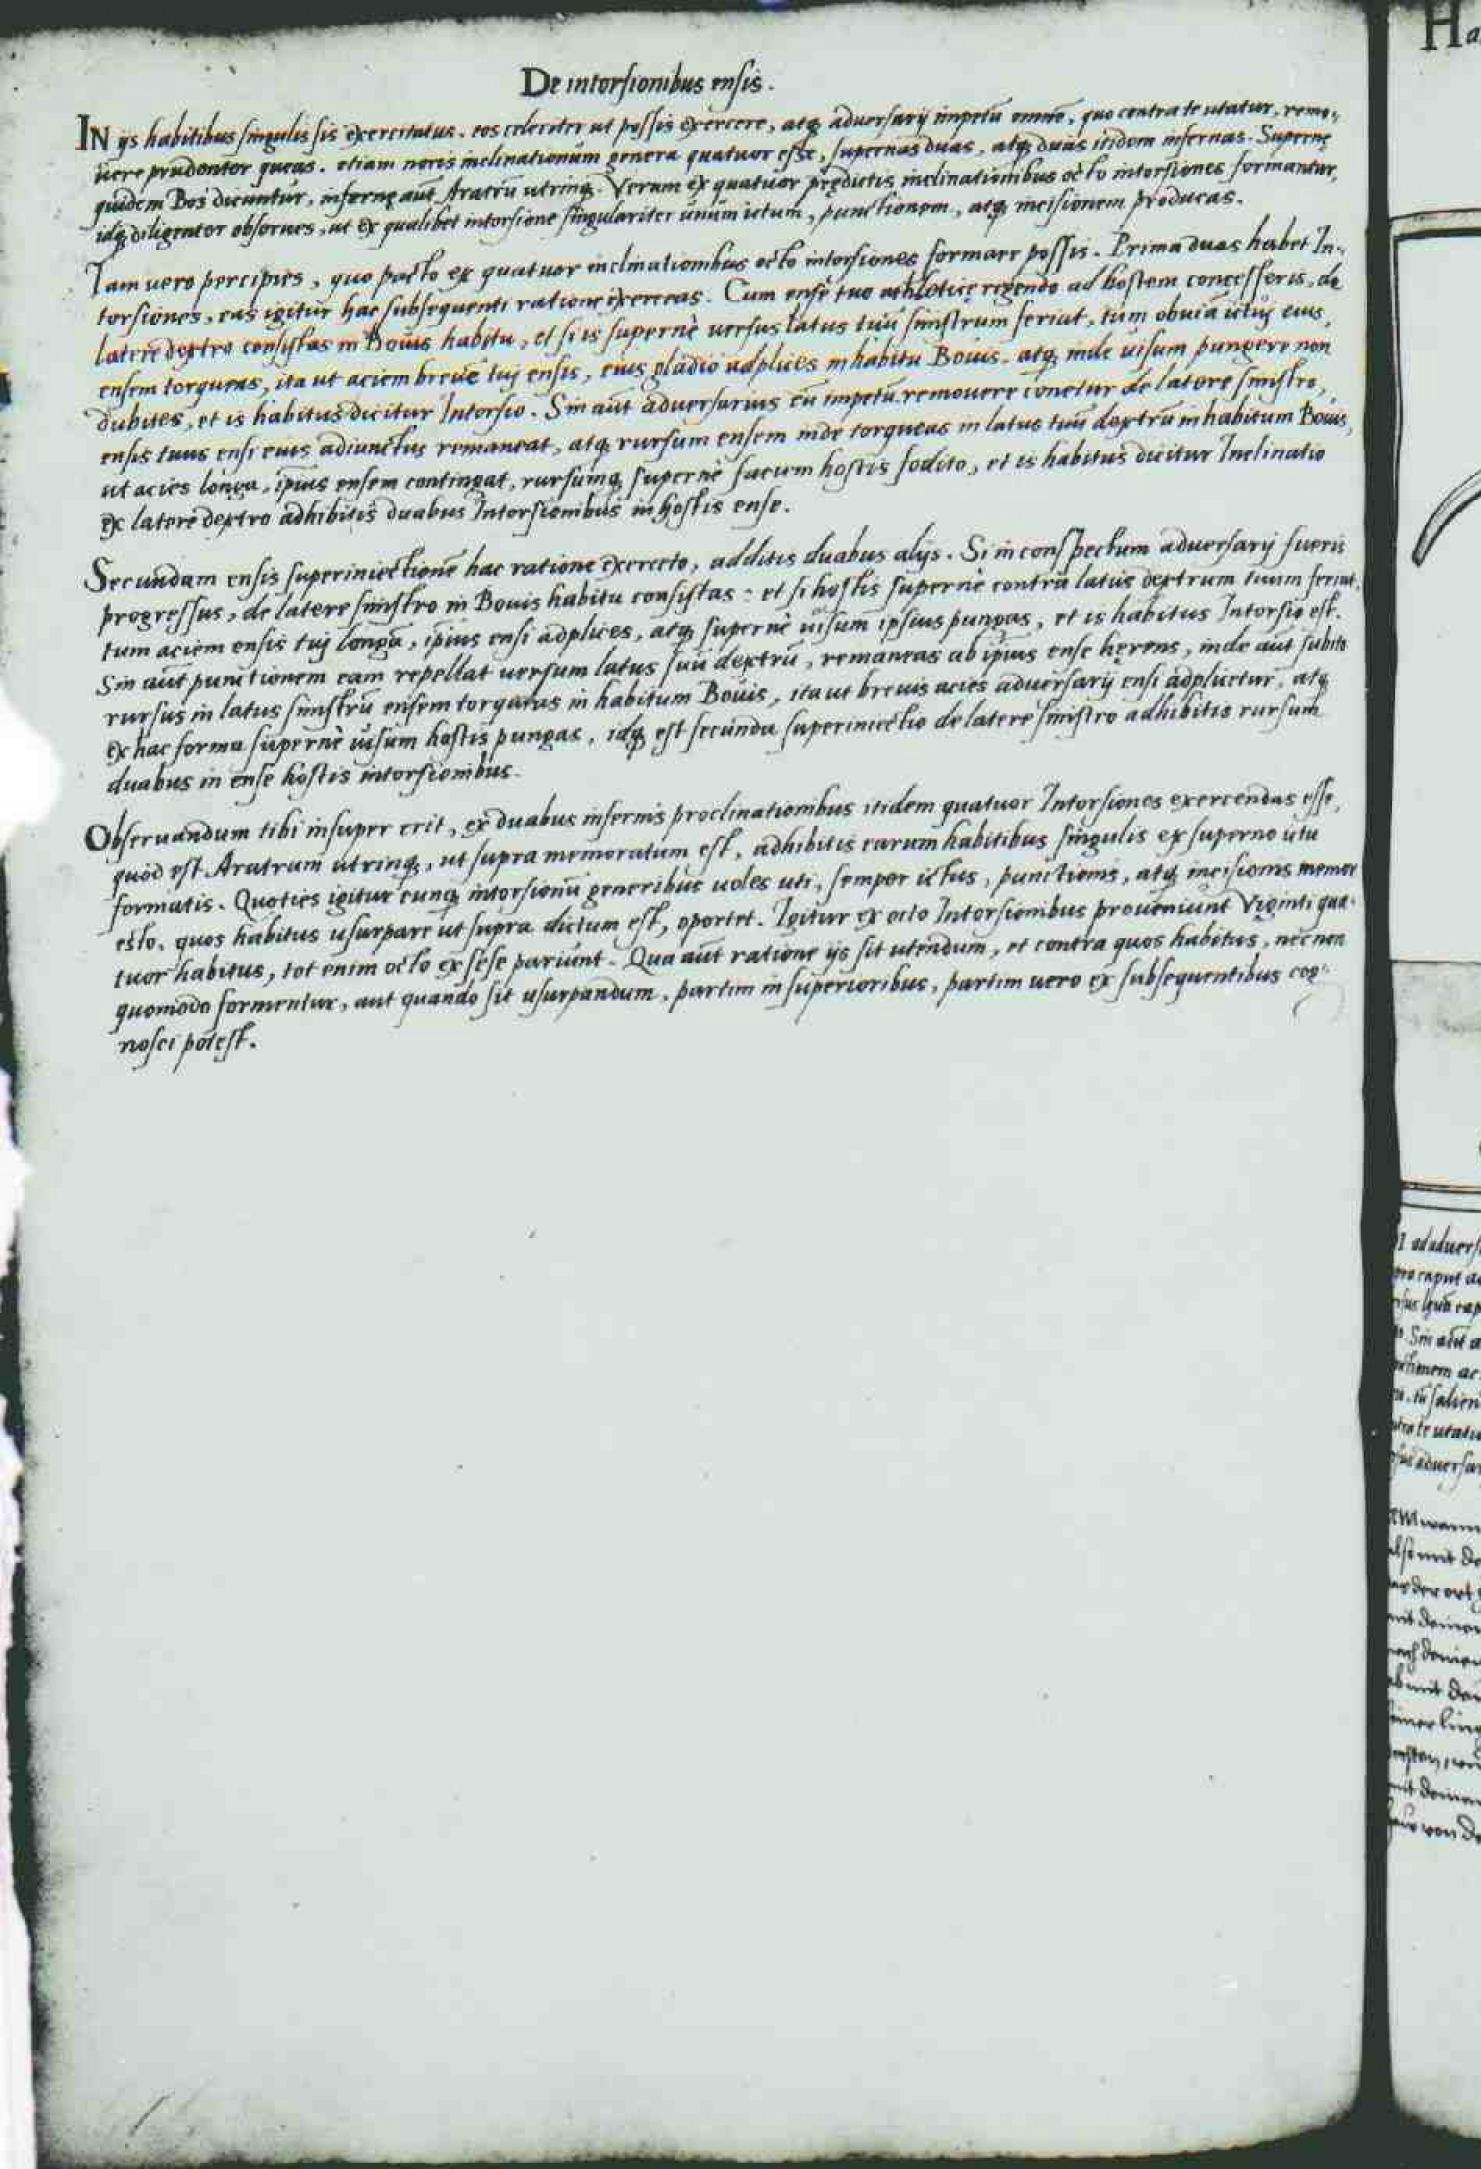 De intorsionibus ensis.
IN ijs habitibus singulis sis exercitatus. eos celeriter ut possis exercere, atq; adversarij impetũ omnẽ, quo contra te utatur, remo-
uere prudenter queas. etiam noris inclinationum genera quatuor esse, supernas duas, atq; duas itidem infernas. Supernę
quidem Bos dicuntur, infernę aut̃ Aratrũ utrinq;. Verum ex quatuor prędictis inclinationibus octo intorsiones formantur,
idq; diligenter obserues, ut ex qualibet intorsione singulariter unum ictum, punctionem, atq; incisionem producas.
Iam uero percipies, quo pacto ex quatuor inclinationibus octo intorsiones formare possis. Prima duas habet In-
torsiones, eas igitur hac subsequenti ratione exerceas. Cum ense tuo athletice regendo ad hostem concesseris, de
latere dextro consistas in Bouis habitu, et si is supernè uersus latus tuũ sinistrum feriat, tum obuiã ictuj eius,
ensem torqueas, ita ut aciem breuẽ tuj ensis, eius gladio adplices in habitu Bouis. atq; inde uisum pungere non
dubites, et is habitus dicitur Intorsio. Sin aut̃ aduersarius eũ impetũ remouere conetur de latere sinistro,
ensis tuus ensi eius adiunctus remaneat, atq; rursum ensem inde torqueas in latus tuũ dextrũ in habitum Bouis,
ut acies longa, ip̃ius ensem contingat, rursumq; supernè faciem hostis fodito, et is habitus dicitur Inclinatio
ex latere dextro adhibitis duabus Intorsionibus in hostis ense.
Secundam ensis superiniectionẽ hac ratione exerceto, additis duabus alijs. Si in conspectum aduersarij fueris
progressus, de latere sinistro in Bouis habitu consistas: et si hostis supernè contra latus dextrum tuum feriat,
tum aciem ensis tuj longã, ip̃ius ensi adplices, atq; supernè uisum ipsius pungas, et is habitus Intorsio est.
Sin aut̃ punctionem eam repellat uersum latus suũ dextrũ, remaneas ab ip̃ius ense hęrens, inde aut̃ subito
rursus in latus sinistrũ ensem torqueas in habitum Bouis, ita ut breuis acies aduersarij ensi adplicetur, atq;
ex hac forma supernè uisum hostis pungas, idq; est secunda superiniectio de latere sinistro adhibitis rursum
duabus in ense hostis intorsionibus.
Obseruandum tibi insuper erit, ex duabus infernis proclinationibus itidem quatuor Intorsiones exercendas esse,
quod est Aratrum utrinq;, ut supra memoratum est, adhibitis earum habitibus singulis ex superno ictu
formatis. Quoties igitur cunq; intorsionũ generibus uoles uti, semper ictus, punctionis, atq; incisionis memor
esto, quos habitus usurpare ut supra dictum est, oportet. Igitur ex octo Intorsionibus proueniunt Viginti qua-
tuor habitus, tot enim octo ex sese pariunt. Qua aut̃ ratione ijs sit utendum, et contra quos habitus, nec non
quomodo formentur, aut quando sit usurpandum, partim in superioribus, partim uero ex subsequentibus cog-
nosci potest.